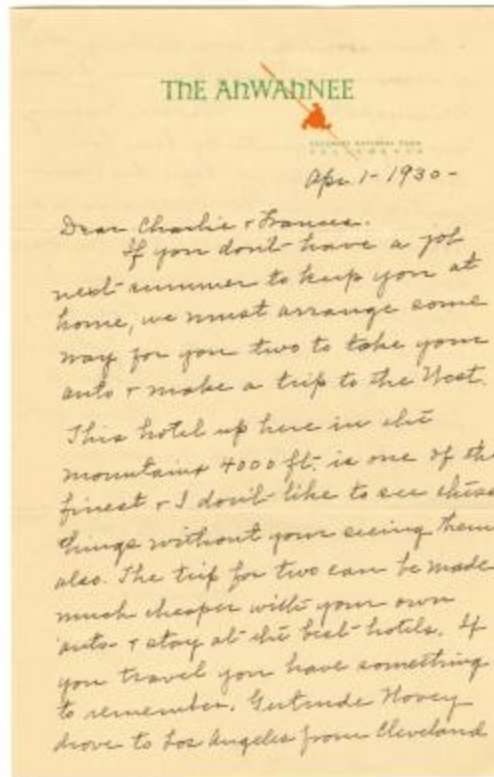 The Ahwahnee
YOSEMITE NATIONAL PARK
CALIFORNIA
Apr. 1 - 1930 -
Dear Charlie & Frances.
If you don't have a job
next summer to keep you at
home, we must arrange some
way for you two to take your
auto & make a trip to the West.
This hotel up here in the
mountains 4000 ft. is one of the
finest & I don't like to see these
things without your seeing them
also. The trip for two can be made
much cheaper with your own
auto & stay at the best hotels. If
you travel you have something
to remember. Gertrude Hovey
drove to Los Angeles from Cleveland